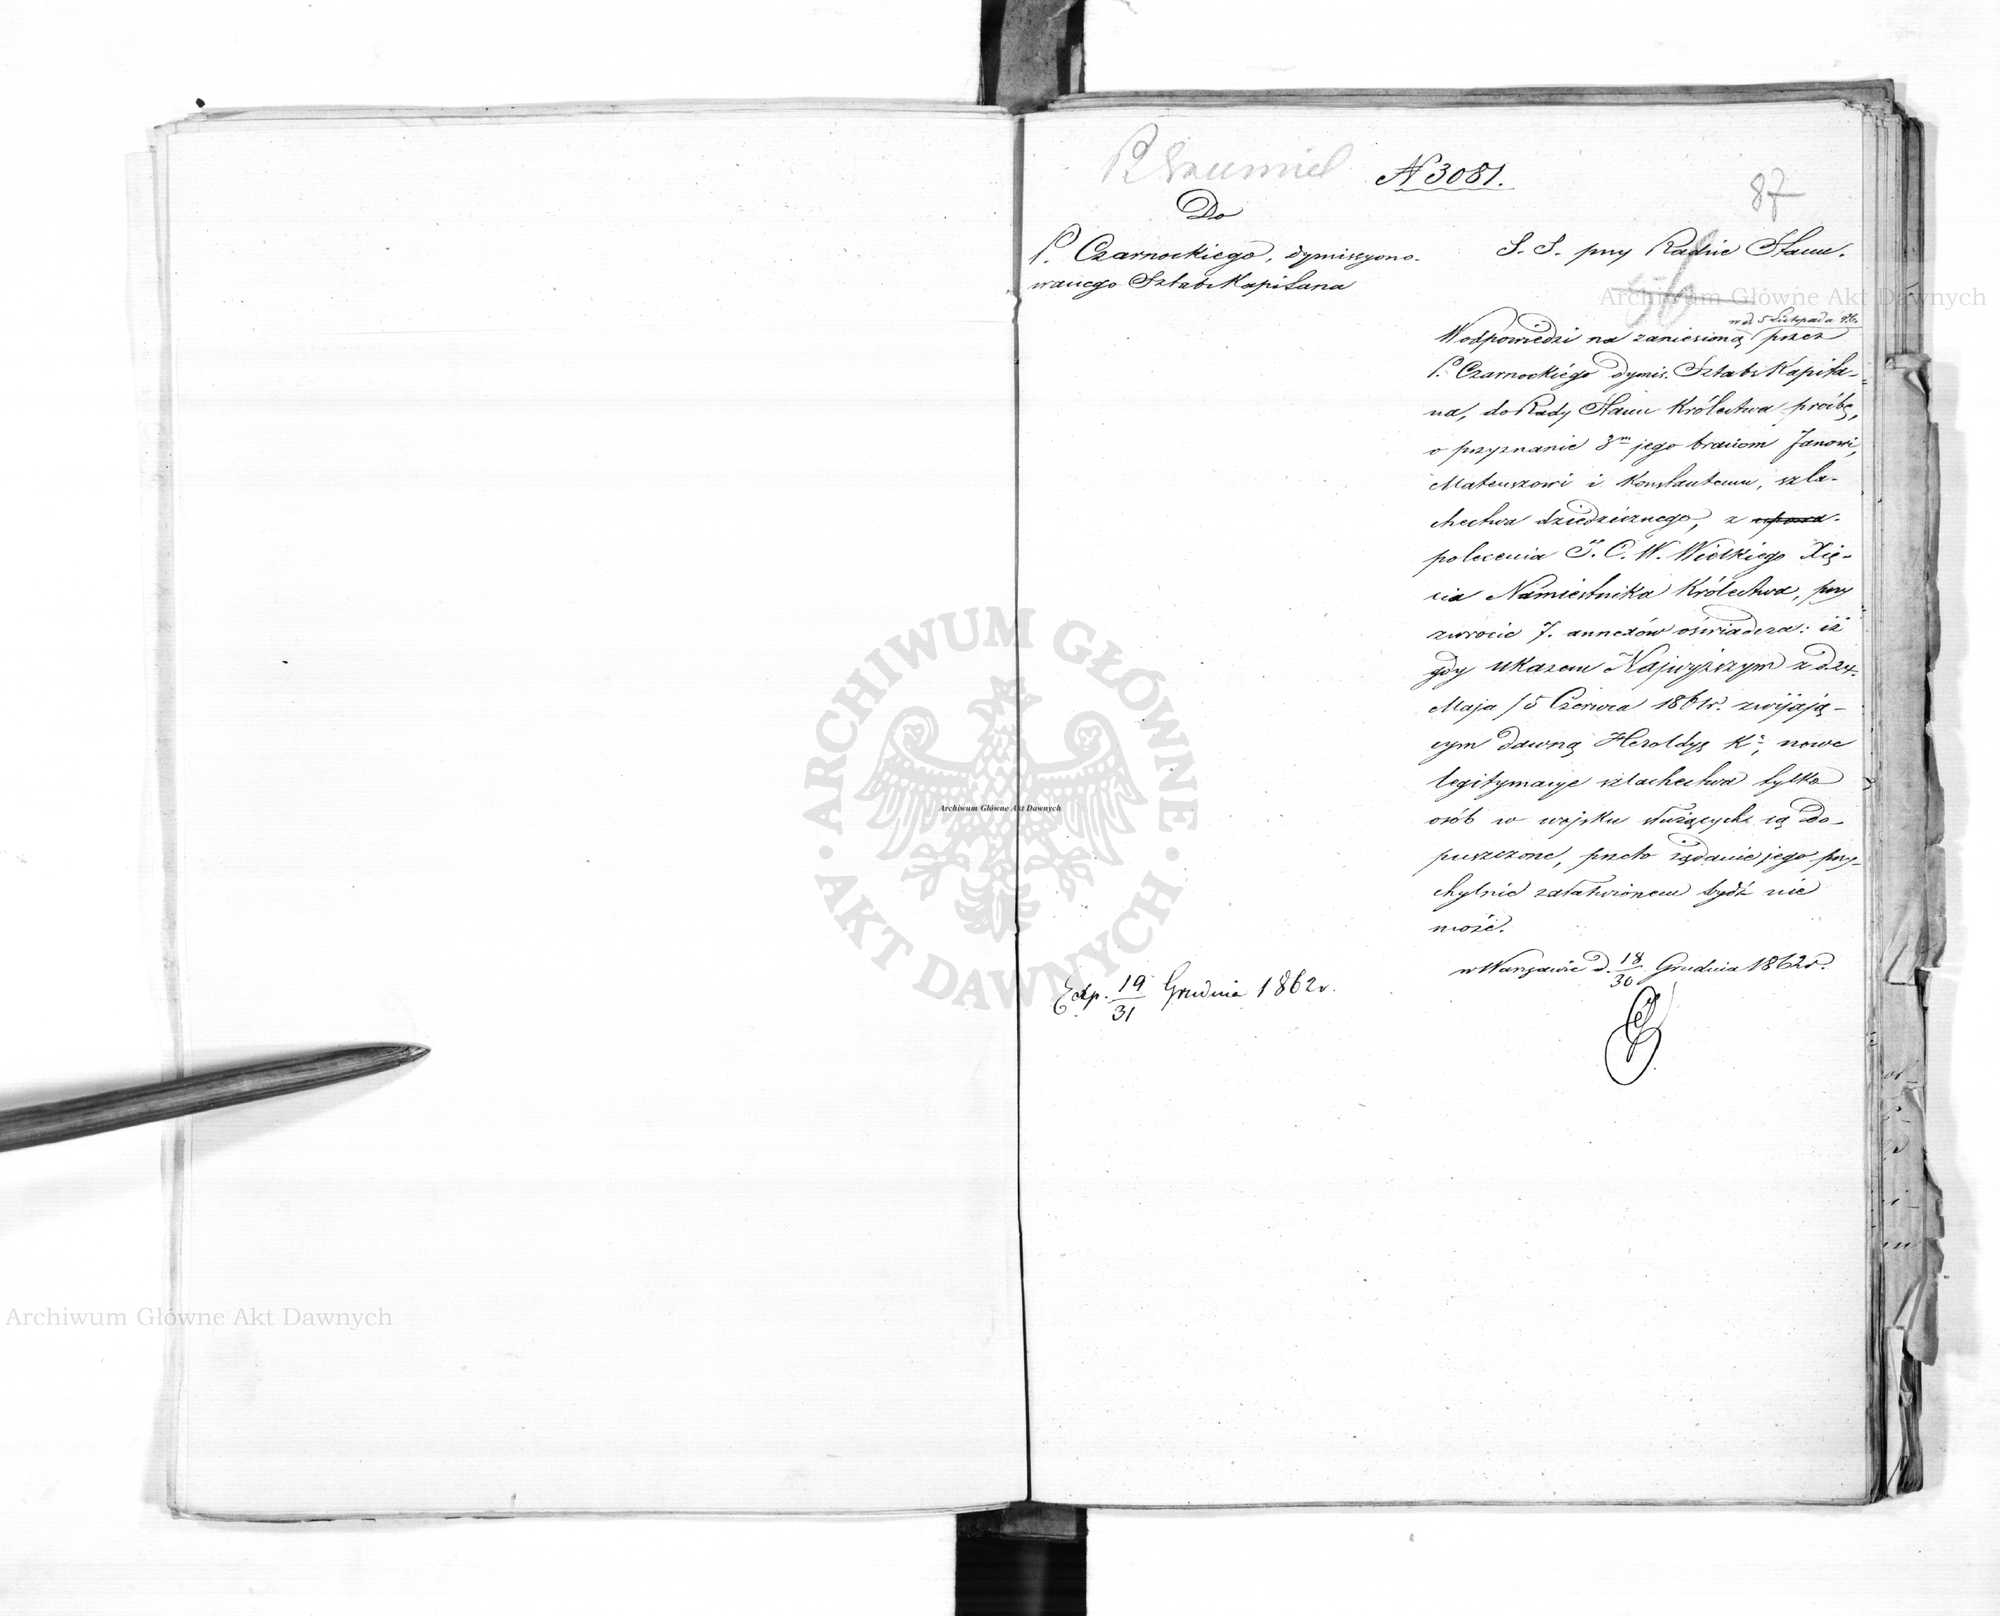 N 3081.
87
Do
P. Czarnockiego, dymissyono-
wanego Sztabs Kapitana
S. S. przy Radzie Stanu.
w d. 5 Listopada r. b.
W odpowiedzi na zaniesioną przez
P. Czarnockiégo dymis. Sztabs Kapita-
na, do Rady Stanu Królestwa prośbę,
o przyznanie 3m jego braciom Janowi,
Mateuszowi i Konstantemu, szla-
chectwa dziedzicznego, z
polecenia J. C. W. Wielkiego Xię-
cia Namiestnika Królestwa, przy
zwrocie 7. annexów oświadcza: iż
gdy ukazem Najwyższym z d. 24
Maja / 5 Czerwca 1861 r. zwijają-
cym dawną Heroldyę Ka, nowe
legitymacye szlachectwa tylko
osób w wojsku służących są do-
puszczone, przeto żądanie jego przy-
chylnie załatwionem bydź nie
może.
w Warszawie d. 18/30 Grudnia 1862 r.
Exp. 19/31 Grudnia 1862 r.
ARCHIWUM GŁÓWNE AKT DAWNYCH
Archiwum Główne Akt Dawnych
Archiwum Główne Akt Dawnych
Archiwum Główne Akt Dawnych